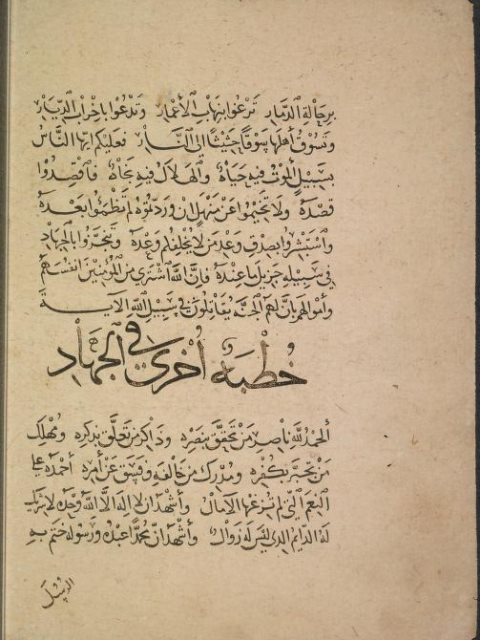 برجالة الدمار تزعوا بنهاب الأعمار وتدعوا باخراب الديار
وتسوق أهلها سوقا حثيثا إلى النار فعليكم ايها الناس
بسبيل الموت فيه حياة والهلاك فيه نجاة فاقصدوا
قصده ولا تخيموا عن منهل ان وردتموه لم تظمئوا بعده
واستبشروا بصدق وعد من لا يخلفكم وعده وتنجزوا بالجهاد
في سبيله جزيل ما عنده فإن الله اشترى من المؤمنين انفسهم
وأموالهم بان لهم الجنة يقاتلون في سبيل الله الاية
خطبة أخرى في الجهاد
الحمد لله ناصر من تحقق بنصره وذاكر من تخلق بذكره ومهلك
من تجبر بكفره ومدرك من خالفه وفسق عن أمره أحمده على
النعم التي لم تزعها الآمال وأشهد ان لا اله الا الله وحده لا شريك
له الدايم الذي ليس له زوال وأشهد ان محمدا عبده ورسوله ختم به